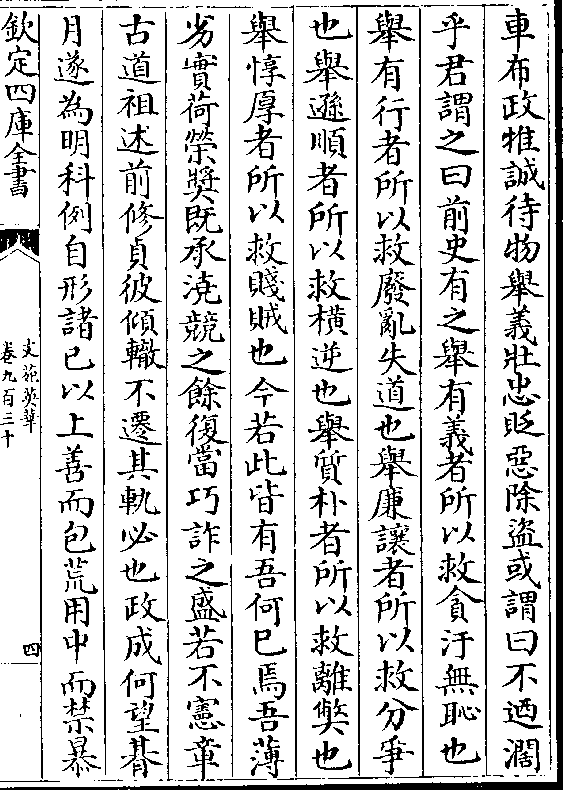 車布政推誠待物舉義壯忠貶惡除盜或謂曰不迺濶
乎君謂之曰前史有之舉有義者所以救貪汙無恥也
舉有行者所以救廢亂失道也舉廉讓者所以救分爭
也舉遜順者所以救横逆也舉質朴者所以救離獘也
舉惇厚者所以救賤賊也今若此皆有吾何巳焉吾薄
劣實荷榮奬既承澆競之餘復當巧詐之盛若不憲章
古道祖述前修貞彼傾轍不遷其軌必也政成何望朞
月遂為明科例自形諸已以上善而包荒用中而禁暴
欽定四庫全書
文苑英華
卷九百三十
四